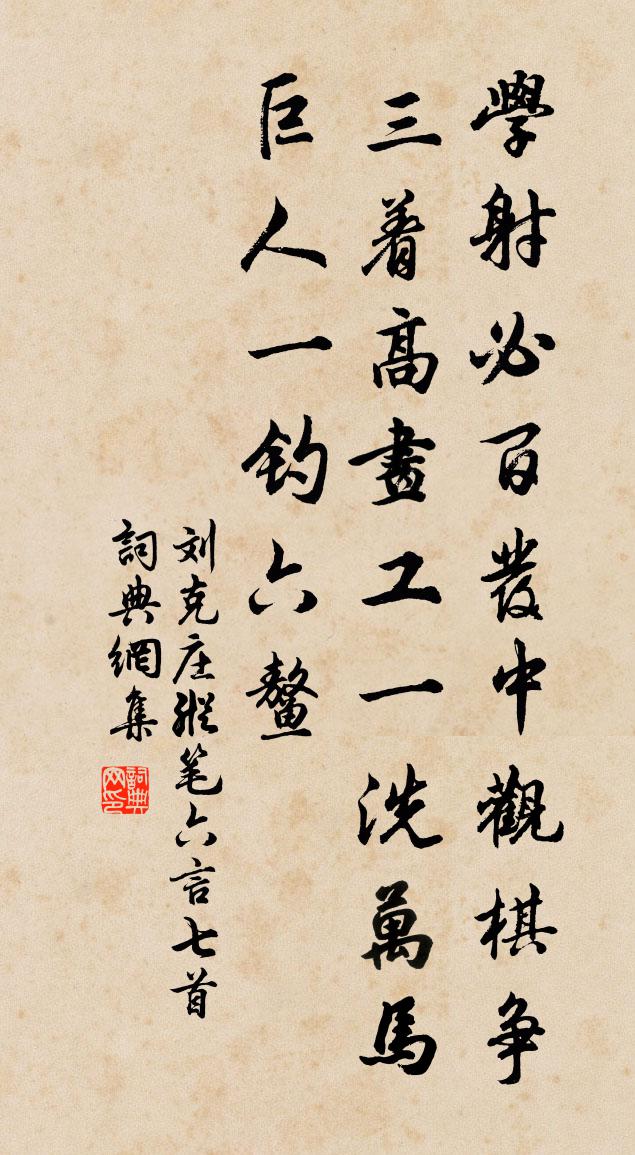 學射必百發中觀棋爭
三着高畫工一洗萬馬
巨人一釣六鰲
刘克庄縱笔六言七首
詞典網集
詞典网印